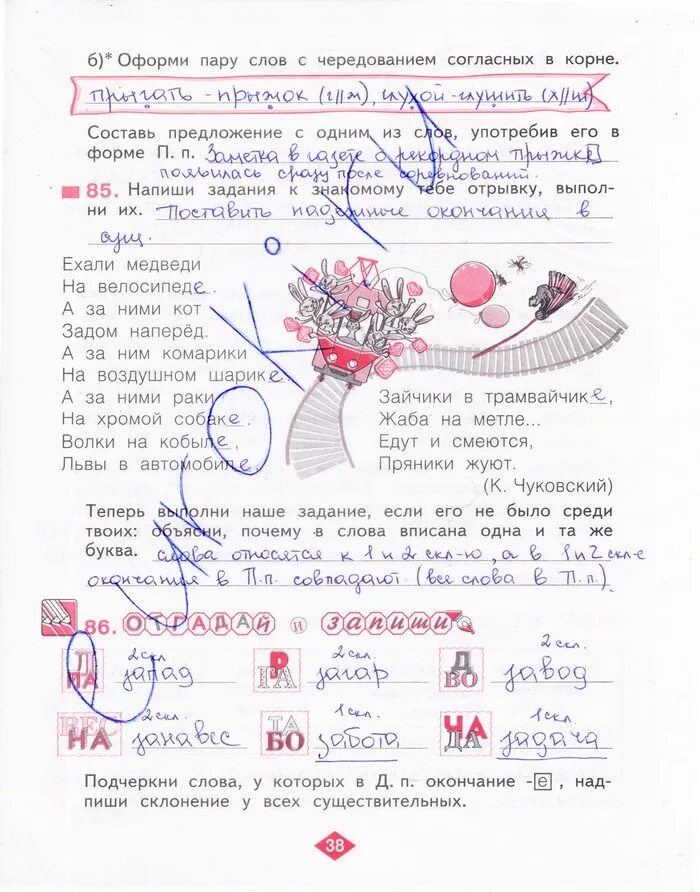 б)* Оформи пару слов с чередованием согласных в корне.
прыгать - прыжок (г//ж), глухой - глушить (х//ш)
Составь предложение с одним из слов, употребив его в
форме П. п. Заметка в газете о рекордном прыжке
появилась сразу после соревнований.
85. Напиши задания к знакомому тебе отрывку, выпол-
ни их. Поставить падежные окончания в
сущ.
Ехали медведи
На велосипеде.
А за ними кот
Задом наперёд.
А за ним комарики
На воздушном шарике.
А за ними раки
На хромой собаке.
Волки на кобыле,
Львы в автомобиле.
Зайчики в трамвайчике,
Жаба на метле...
Едут и смеются,
Пряники жуют.
(К. Чуковский)
Теперь выполни наше задание, если его не было среди
твоих: объясни, почему в слова вписана одна и та же
буква. слова относятся к 1 и 2 скл-ю, а в 1 и 2 скл-е
окончания в П.п. совпадают (все слова в П.п.).
86. ОТГАДАЙ и запиши
2 скл. 2 скл. 2 скл.
Д ПА запад Р ГА загар Д ВО завод
2 скл. 1 скл. 1 скл.
ВЕС НА занавес ТА БО забота ЧА ДА задача
Подчеркни слова, у которых в Д. п. окончание -е, над-
пиши склонение у всех существительных.
38